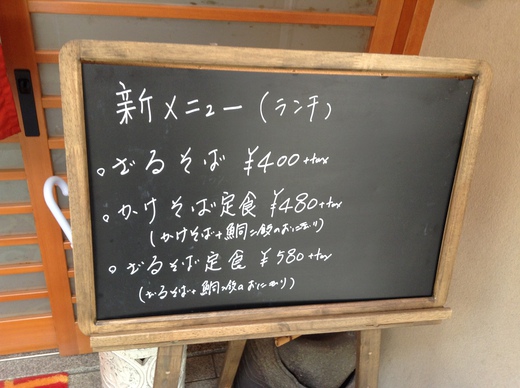 新メニュー(ランチ)
。ざるそば ¥400+tax
。かけそば定食 ¥480+tax
(かけそば+鯛ご飯のおにぎり)
。ざるそば定食 ¥580+tax
(ざるそば+鯛ご飯のおにぎり)